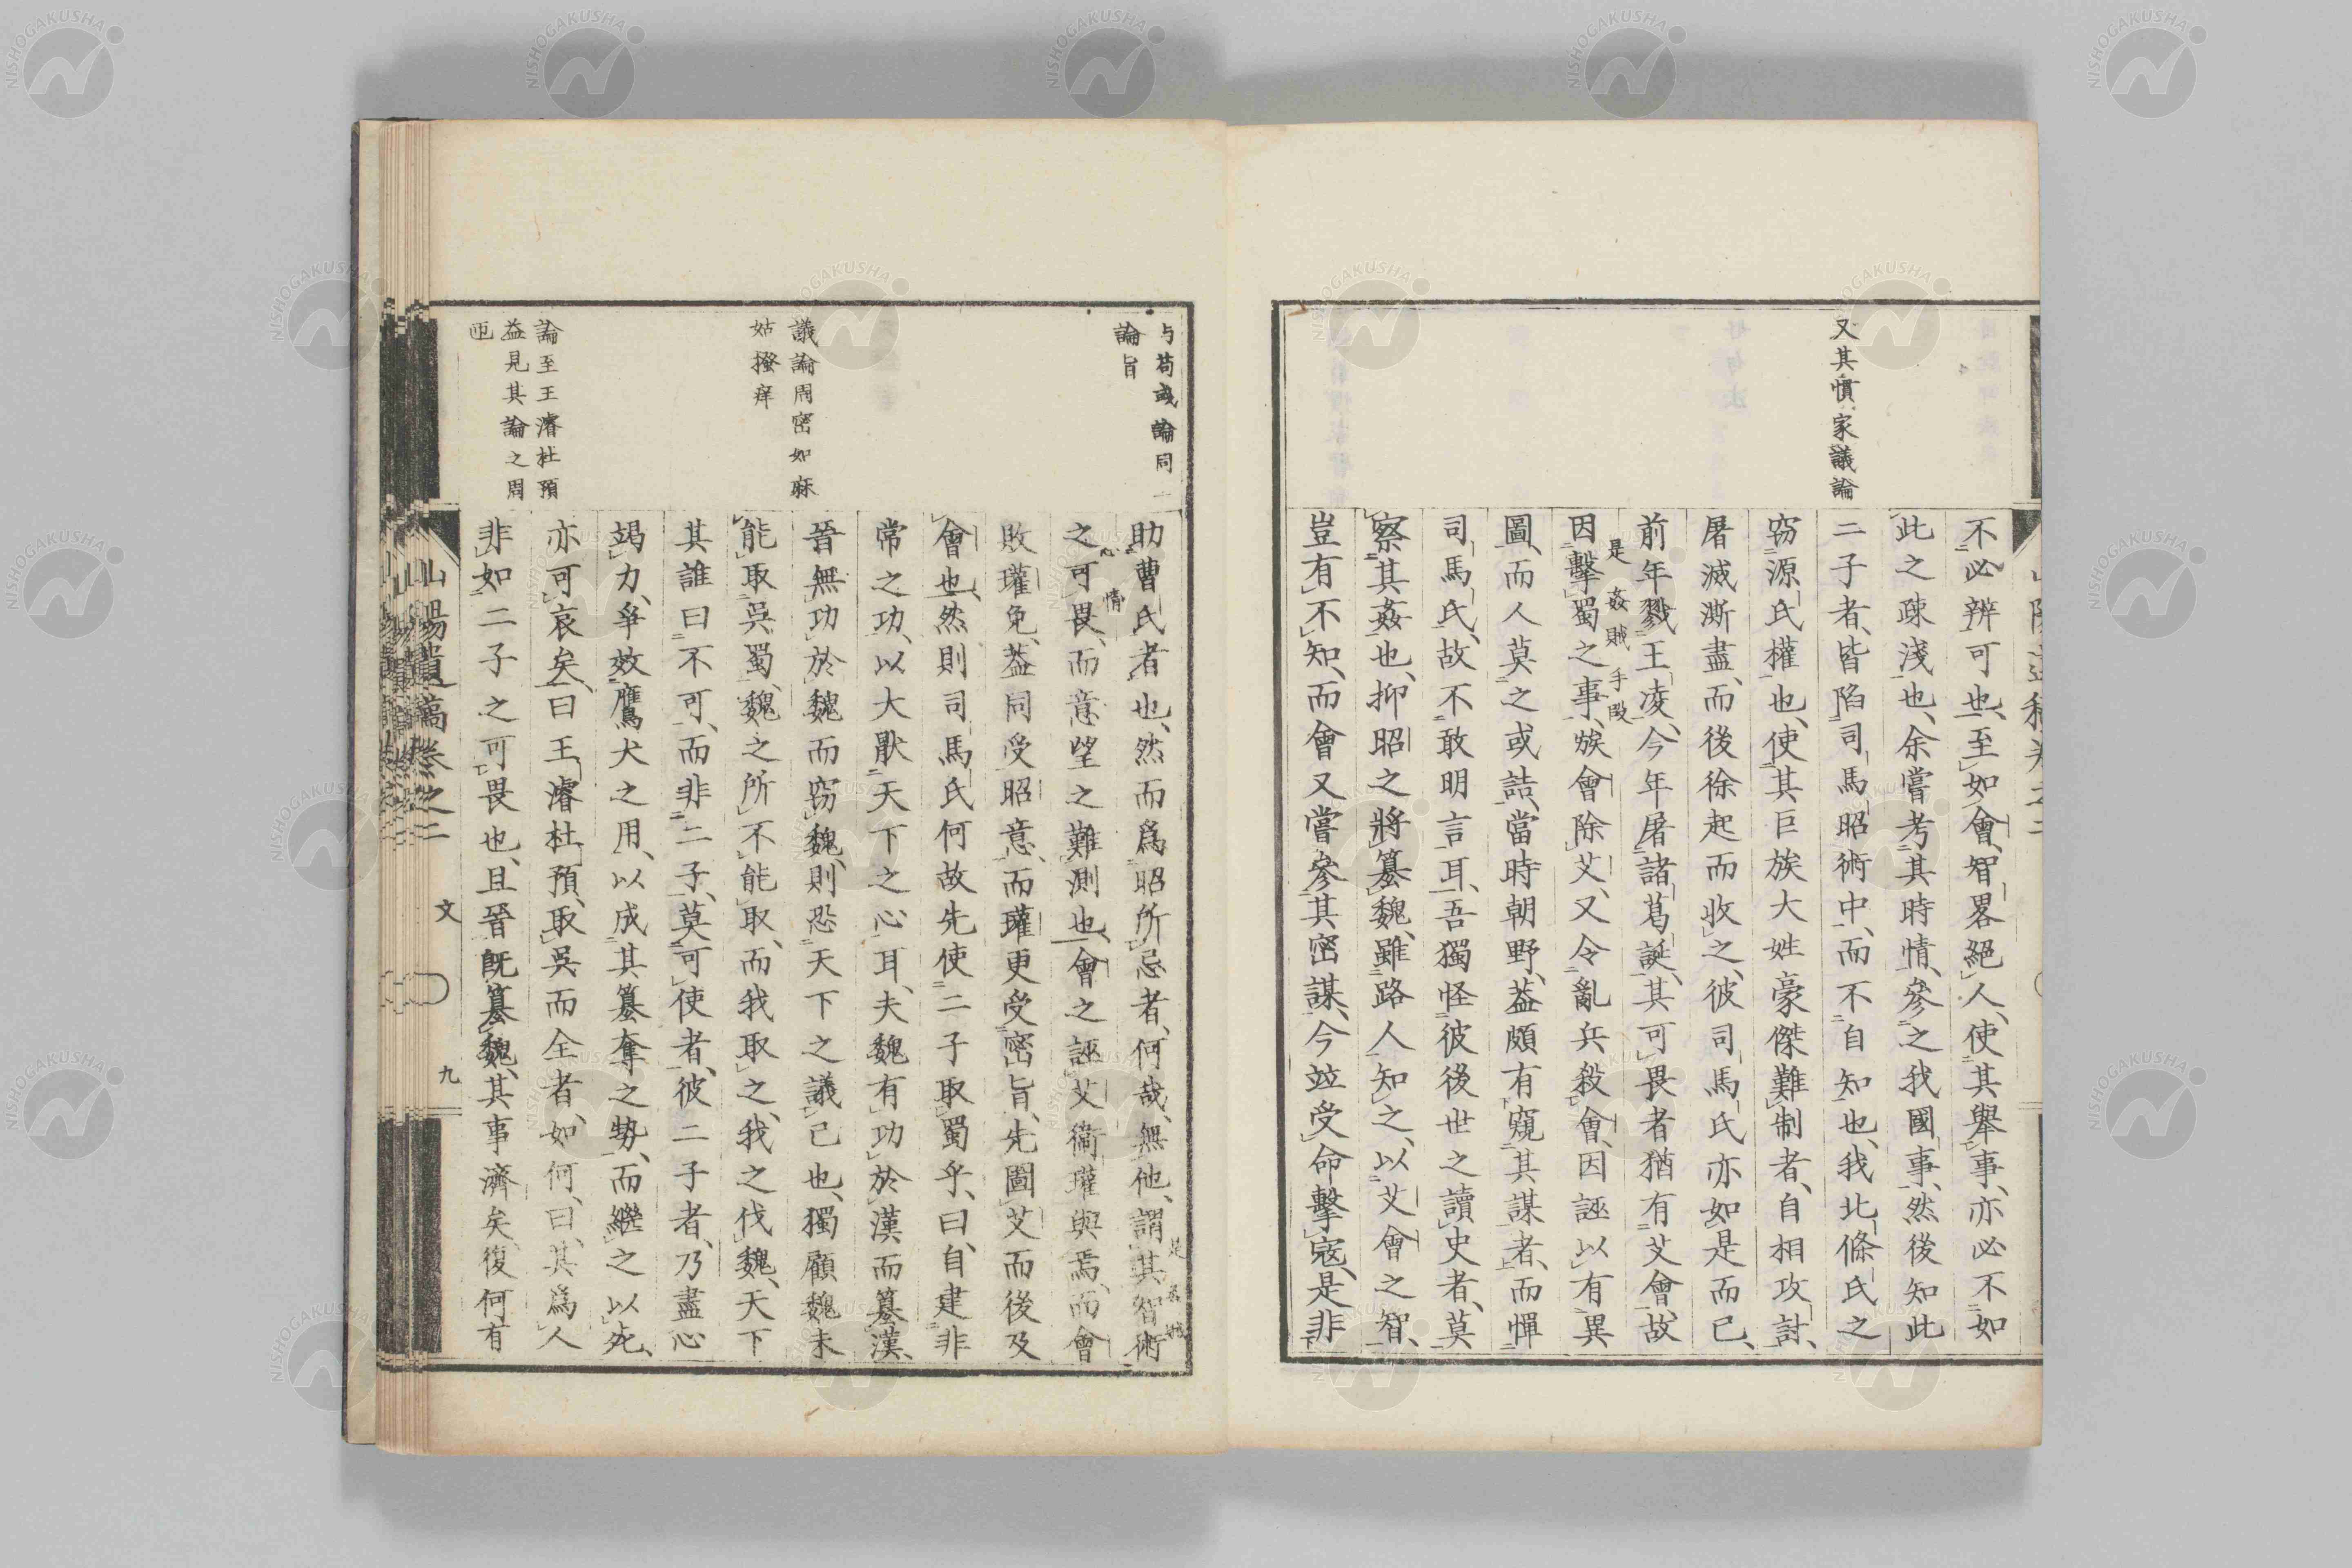 又其慣家議論
不必辨可也、至如會、智畧絕人、使其舉事、亦必不如
此之疎淺也、余嘗考其時情、參之我國事、然後知此
二子者、皆陷司馬昭術中、而不自知也、我北條氏之
窃源氏權也、使其巨族大姓豪傑難制者、自相攻討、
屠滅澌盡、而後徐起而收之、彼司馬氏亦如是而已、
前年戮王凌、今年屠諸葛誕、其可畏者猶有艾會、故
是姦賊手段
因擊蜀之事、嫉會除艾、又令亂兵殺會、因誣以有異
圖、而人莫之或詰、當時朝野、蓋頗有窺其謀者、而憚
司馬氏、故不敢明言耳、吾獨怪彼後世之讀史者、莫
察其姦也、抑昭之將簒魏、雖路人知之、以艾會之智、
豈有不知、而會又嘗參其密謀、今竝受命擊寇、是非
与荀彧論同一
論旨
議論周密如麻
姑搔痒
論至王濬杜預
益見其論之周
匝
助曹氏者也、然而爲昭所忌者、何哉、無他、謂其智術
之可畏、而意望之難測也、會之誣艾、衞瓘與焉、而會
敗瓘免、蓋同受昭意、而瓘更受密旨、先圖艾而後及
會也、然則司馬氏何故先使二子取蜀乎、曰、自建非
常之功、以大厭天下之心耳、夫魏有功於漢而簒漢、
晉無功於魏而窃魏、則恐天下之議己也、獨顧魏未
能取吳蜀、魏之所不能取、而我取之、我之伐魏、天下
其誰曰不可、而非二子、莫可使者、彼二子者、乃盡心
竭力、爭效鷹犬之用、以成其簒奪之勢、而繼之以死、
亦可哀矣、曰王濬杜預、取吳而全者、如何、曰、其爲人
非如二子之可畏也、且晉既簒魏、其事濟矣、復何有
山陽遺稿卷之二 文 九